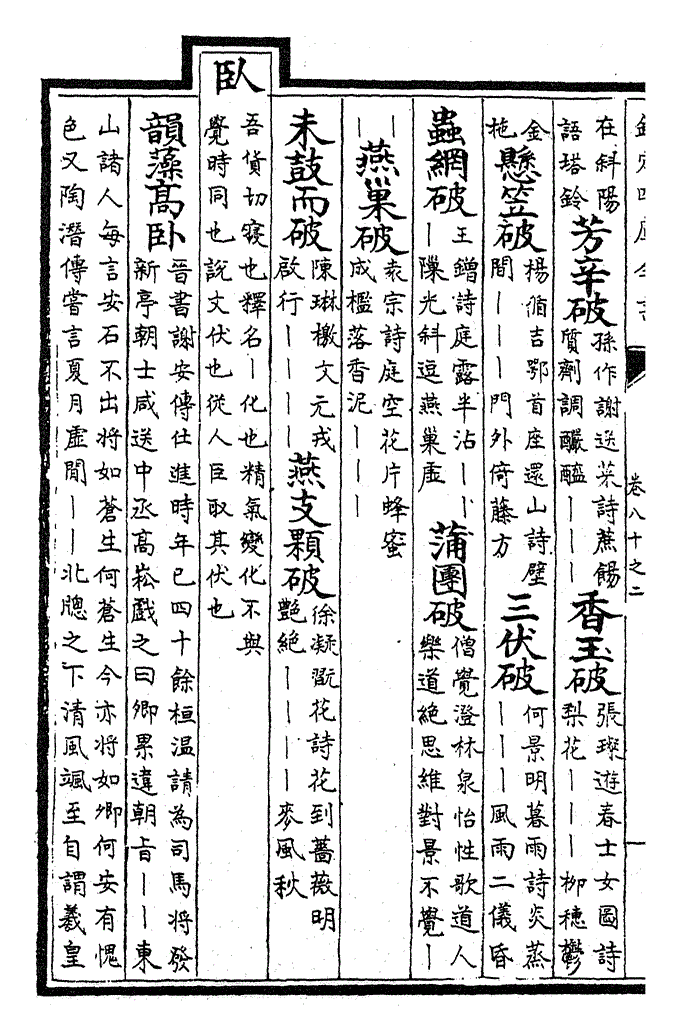 欽定四庫全書 卷八十之二
在斜陽
語塔鈴
芳辛破
孫作謝送菜詩蔗餳
質劑調釅醯｜｜｜
香玉破
張璨遊春士女圖詩
梨花｜｜｜柳穗鬱
金
柂
懸笠破
楊循吉鄂首座還山詩壁
間｜｜｜門外倚藤方
三伏破
何景明暮雨詩炎蒸
｜｜｜風雨二儀昏
蟲網破
王鏳詩庭露半沾｜｜
｜隟光斜逗燕巢虛
蒲團破
僧覺澄林泉怡性歌道人
樂道絶思維對景不覺｜
｜
｜
燕巢破
袁宗詩庭空花片蜂蜜
成檻落香泥｜｜｜
未鼓而破
陳琳檄文元戎
啟行｜｜｜｜
燕支顆破
徐凝翫花詩花到薔薇明
艷絶｜｜｜｜麥風秋
臥
吾貨切寢也釋名｜化也精氣變化不與
覺時同也說文伏也從人臣取其伏也
韻藻髙卧
晉書謝安傳仕進時年已四十餘桓温請為司馬將發
新亭朝士咸送中丞髙崧戲之曰卿累違朝旨｜｜東
山諸人每言安石不出將如蒼生何蒼生今亦將如卿何安有愧
色又陶潛傳嘗言夏月虛閒｜｜北牕之下清風颯至自謂羲皇